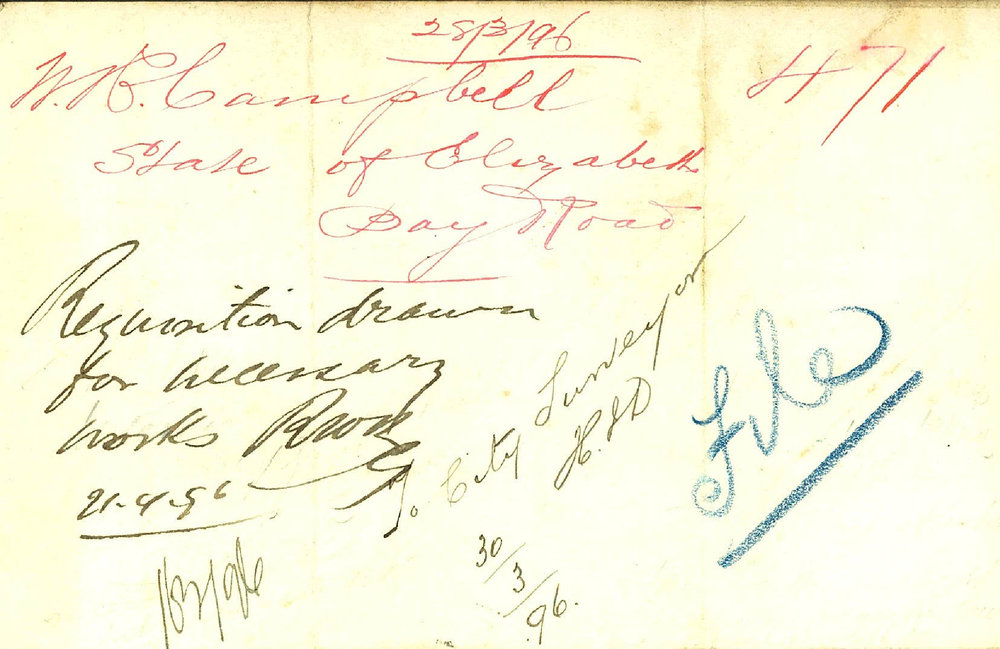 28/3/96
W. R. Campbell
471
State of Elizabeth
Bay Road
Requisition drawn
for necessary
works
21.4.96
To City Surveyor
H.J.D
30/3/96.
File